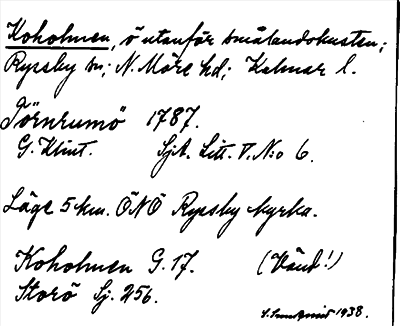 Koholmen, ö utanför smålandskusten;
Ryssby sn; N. Möre hd; Kalmar l.
Törnrumö 1787.
G. Klint. SjA. Litt. V. N:o 6.
Läge 5 km. ÖNÖ Ryssby kyrka.
Koholmen G. 17. (Vänd!)
Storö Sj. 256.
1938.